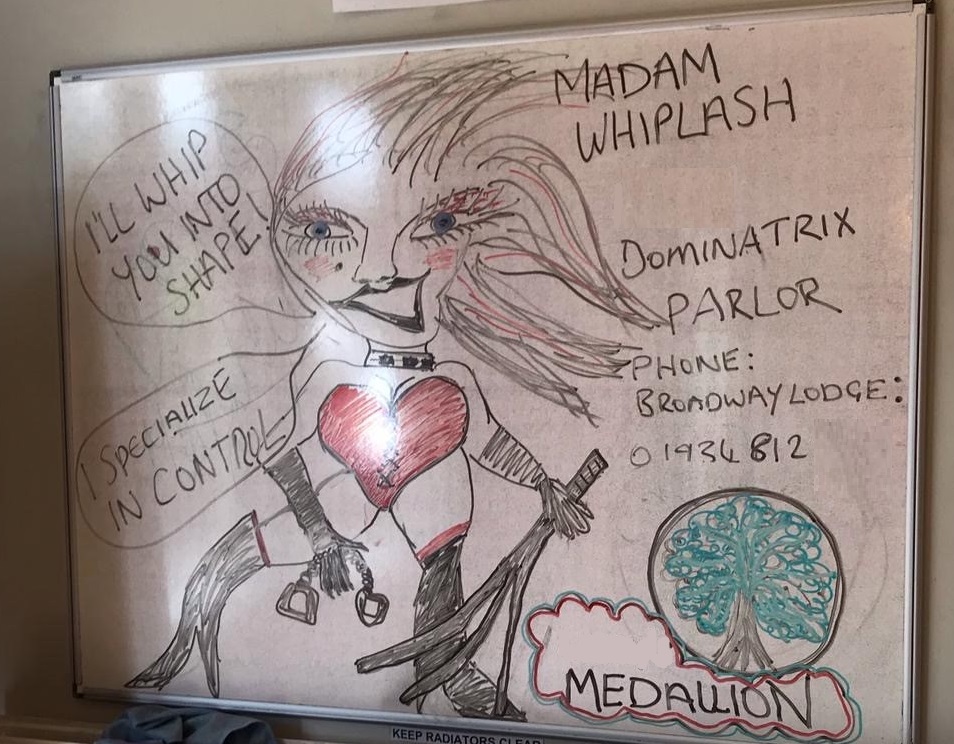 MADAM
WHIPLASH
I'LL WHIP
YOU INTO
SHAPE!
DOMINATRIX
PARLOR
PHONE:
BROADWAY LODGE:
01934 812
I SPECIALIZE
IN CONTROL
MEDALLION
KEEP RADIATORS CLEAR